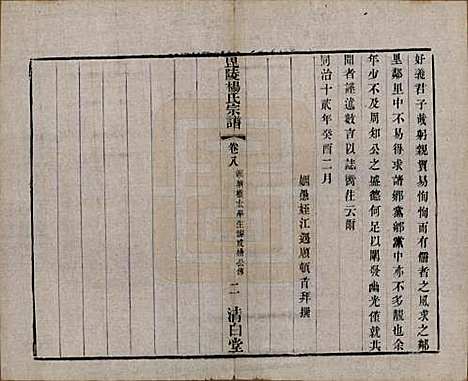 好義君子哉躬親貿易恂恂而有儒者之風求之鄰
里鄰里中不易得求諸鄉黨鄉黨中亦不多覯也余
年少不及周知公之盛德何足以闡發幽光僅就其
聞者謹述數言以誌嚮往云爾
同治十貳年癸酉二月
姻愚姪江遇順頓首拜撰
毘陵楊氏宗譜
卷八
太學生
公傳
二
清白堂